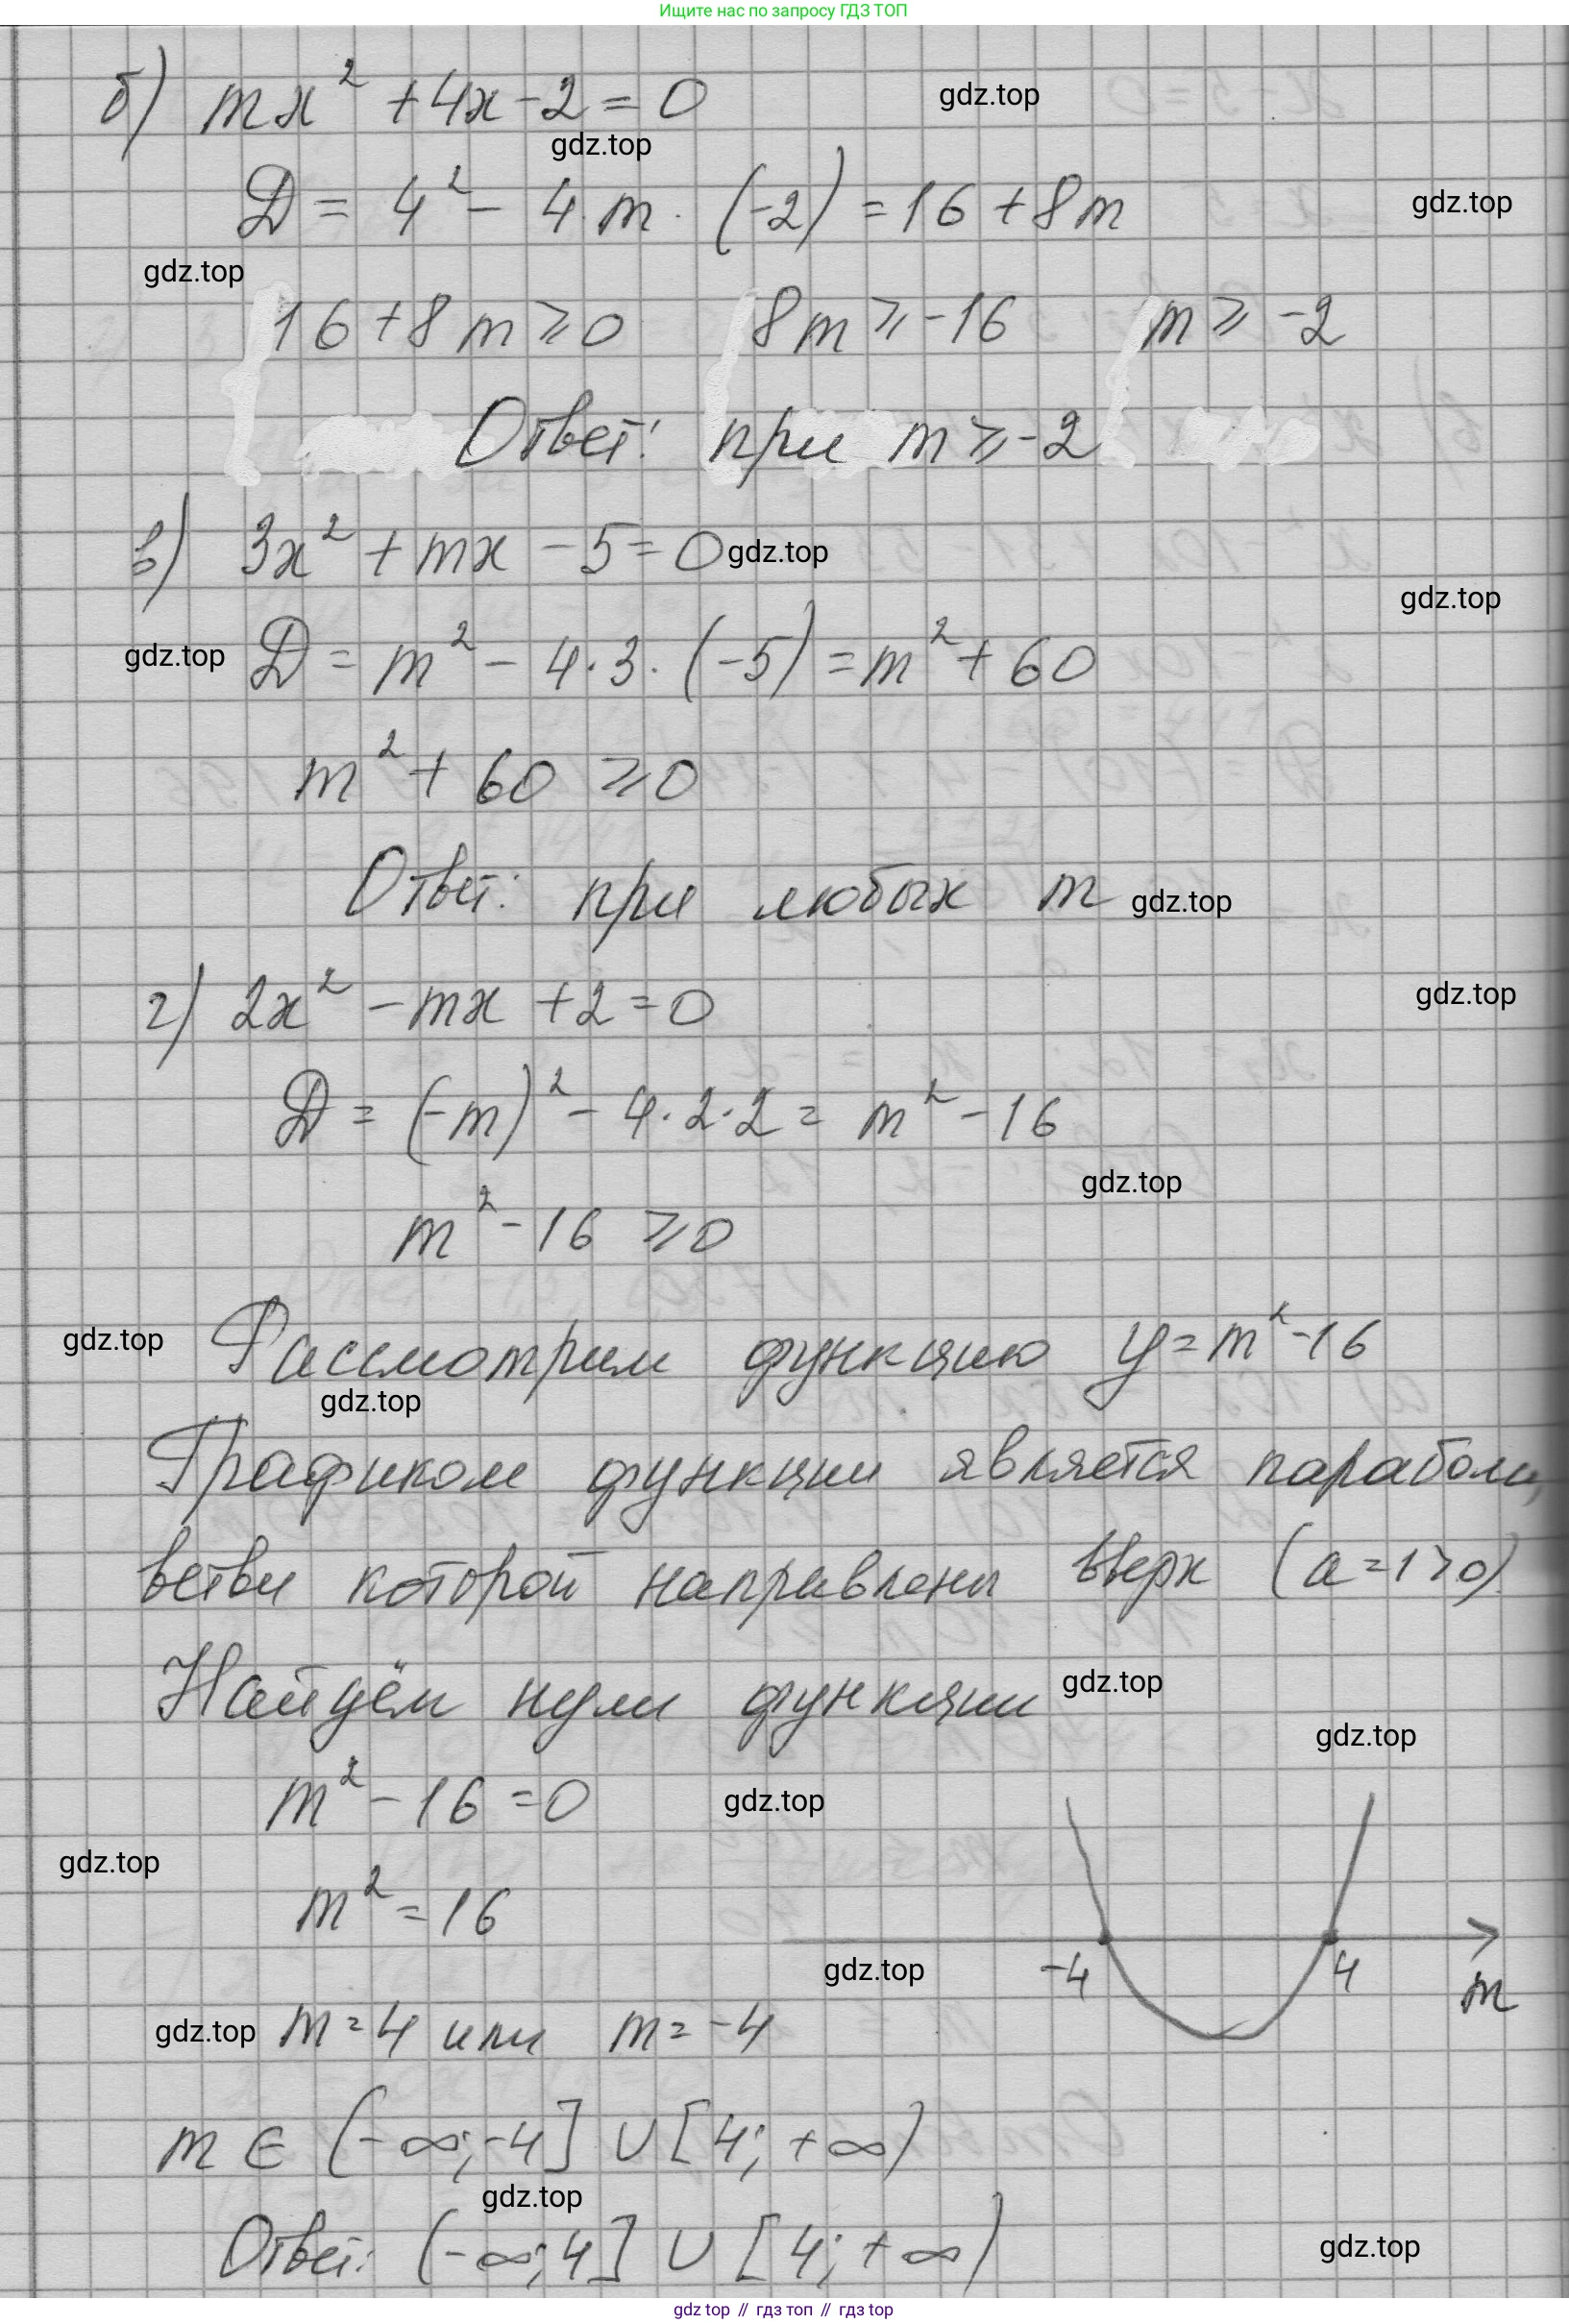 Ищите нас по запросу ГДЗ ТОП
б) mx² + 4x - 2 = 0
gdz.top
gdz.top
D = 4² - 4·m·(-2) = 16 + 8m
gdz.top
gdz.top
16 + 8m ⩾ 0 8m ⩾ -16 m ⩾ -2
Ответ: при m ⩾ -2
в) 3x² + mx - 5 = 0
gdz.top
gdz.top
gdz.top
D = m² - 4·3·(-5) = m² + 60
m² + 60 ⩾ 0
Ответ: при любых m
gdz.top
г) 2x² - mx + 2 = 0
gdz.top
D = (-m)² - 4·2·2 = m² - 16
gdz.top
m² - 16 ⩾ 0
gdz.top
Рассмотрим функцию y = m² - 16
gdz.top
Графиком функции является парабола,
ветви которой направлены вверх (a = 1 > 0).
Найдём нули функции
gdz.top
gdz.top
m² - 16 = 0
gdz.top
gdz.top
m² = 16
-4 4 m
gdz.top
gdz.top
m = 4 или m = -4
m ∈ (-∞; -4] ∪ [4; +∞)
gdz.top
Ответ: (-∞; 4] ∪ [4; +∞)
gdz.top
gdz top // гдз топ // gdz top